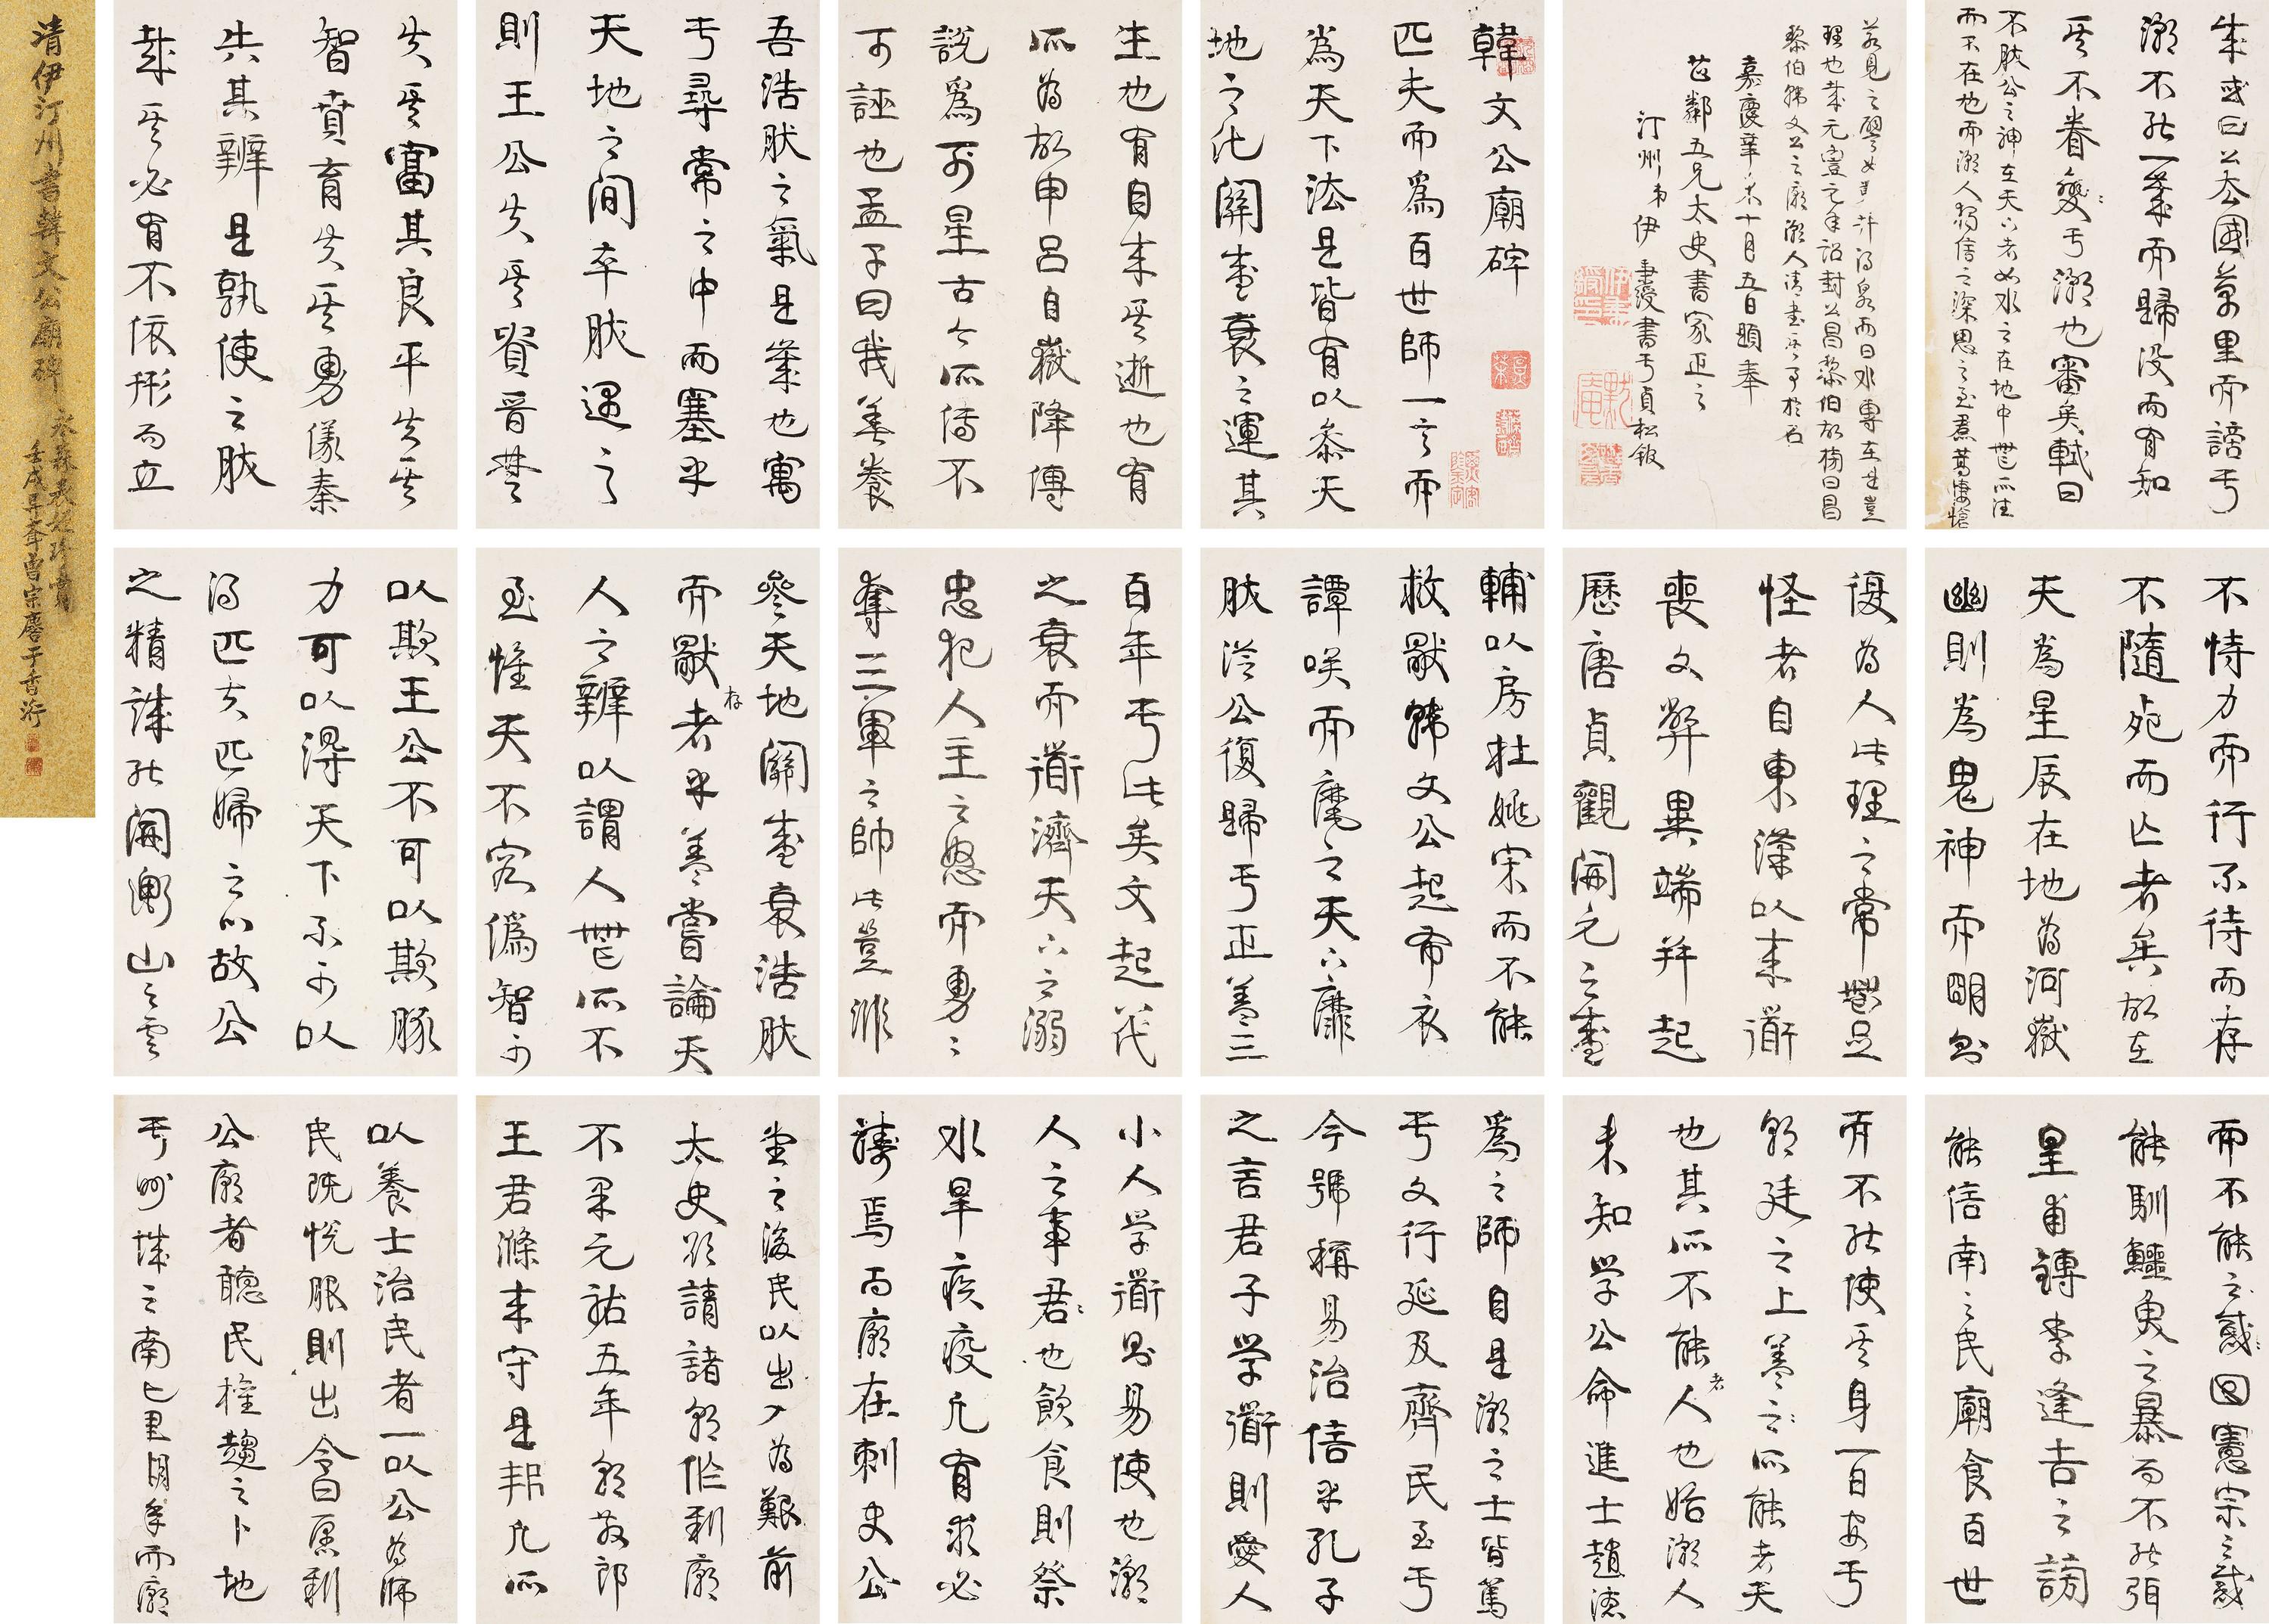 清伊汀州書韓文公廟碑
珍賞
壬戌
韓文公廟碑
匹夫而為百世師一言而
為天下法是皆有以參天
地之化關盛衰之運其
生也有自來其逝也有
所為故申呂自嶽降傅
說為列星古今所傳不
可誣也孟子曰我善養
吾浩然之氣是氣也寓
于尋常之中而塞乎
天地之間卒然遇之
則王公失其貴晉楚
失其富其良平失其
智賁育失其勇儀秦
失其辯是孰使之然
哉其必有不依形而立
不恃力而行不待而存
不隨死而亡者矣故在
天為星辰在地為河嶽
幽則為鬼神而明則
復為人此理之常無足
怪者自東漢以來道
喪文弊異端並起
歷唐貞觀開元之盛
輔以房杜姚宋而不能
救獨韓文公起布衣
談笑而麾之天下靡
然從公復歸于正蓋三
百年于此矣文起八代
之衰而道濟天下之溺
忠犯人主之怒而勇〻
奪三軍之帥此豈非
參天地關盛衰浩然
而獨存者乎蓋嘗論天
人之辯以謂人無所不
至惟天不容偽智可
以欺王公不可以欺豚
力可以得天下不可以
得匹夫匹婦之心故公
之精誠能開衡山之雲
而不能之惑〻回憲宗之惑
能馴鱷魚之暴而不能弭
皇甫鎛李逢吉之謗
能信南之民廟食百世
而不能使其身一日安于
朝廷之上蓋之〻所能者天
也其所不能者人也始潮人
未知學公命進士趙德
為之師自是潮之士皆篤
于文行延及齊民至于
今號稱易治信乎孔子
之言君子學道則愛人
小人學道則易使也潮
人之事君〻也飲食則祭
水旱疾疫凡有求必
禱焉而廟在刺史公
堂之後民以出入為艱前
太史欲請諸朝作新廟
不果元祐五年朝散郎
王君滌來守是邦凡所
以養士治民者一以公為師
民既悅服則出令曰願新
公廟者聽民懽趨之卜地
于州城之南七里期年而廟
成或曰公去國萬里而謫于
潮不能一歲而歸沒而有知
其不眷戀〻于潮也審矣軾曰
不然公之神在天下者如水之在地中無所往
而不在也而潮人獨信之深思之至焄蒿悽愴
若見之譬如鑿井得泉而曰水專在是豈
理也哉元豐元年詔封公昌黎伯故榜曰昌
黎伯韓文公之廟潮人請書其事於石
嘉慶辛未十月五日顒奉
芷鄰五兄太史書家正之
汀州弟伊秉綬書于貞松館